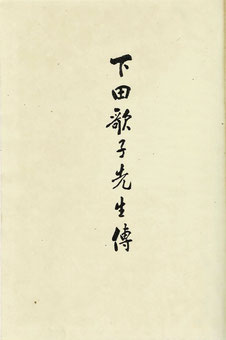 下田歌子先生傳